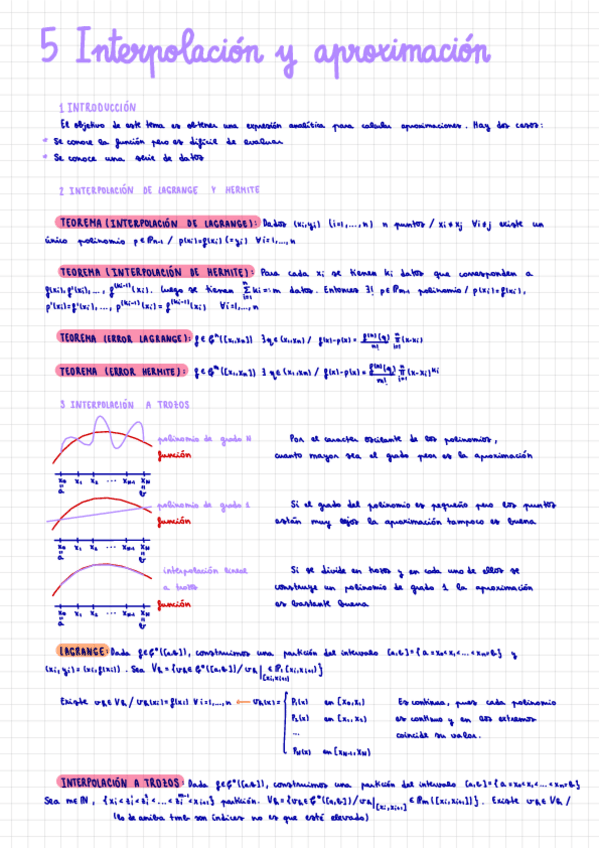 5 Interpolación y aproximación
1 INTRODUCCIÓN
El objetivo de este tema es obtener una expresión analítica para calcular aproximaciones. Hay dos casos:
* Se conoce la función pero es difícil de evaluar
* Se conoce una serie de datos
2 INTERPOLACIÓN DE LAGRANGE Y HERMITE
TEOREMA (INTERPOLACIÓN DE LAGRANGE): Dados (xi,yi) (i=1,...,n) n puntos / xi≠xj ∀i≠j existe un
único polinomio p∈Pn-1 / p(xi)=f(xi) (=yi) ∀i=1,...,n
TEOREMA (INTERPOLACIÓN DE HERMITE): Para cada xi se tienen ki datos que corresponden a
f(xi), f'(xi), ..., f^(ki-1)(xi). Luego se tienen Σ ki =: m datos. Entonces ∃! p∈Pm-1 polinomio / p(xi)=f(xi),
p'(xi)=f'(xi), ..., p^(ki-1)(xi) = f^(ki-1)(xi) ∀i=1,...,n
TEOREMA (ERROR LAGRANGE):
TEOREMA (ERROR HERMITE):
3 INTERPOLACIÓN A TROZOS
polinomio de grado N
función
Por el caracter oscilante de los polinomios,
cuanto mayor sea el grado peor es la aproximación
x0 x1 x2 ... xN-1 xN
polinomio de grado 1
función
Si el grado del polinomio es pequeño pero los puntos
están muy lejos la aproximación tampoco es buena
x0 x1 x2 ... xN-1 xN
interpolación lineal
a trozos
función
Si se divide en trozos y en cada uno de ellos se
construye un polinomio de grado 1 la aproximación
es bastante buena
x0 x1 x2 ... xN-1 xN
LAGRANGE: Dada f∈C⁰([a,b]), construimos una partición del intervalo [a,b]={a=x0<x1<...<xn=b} y
(xi,yi)=(xi,f(xi)). Sea Vh={vh∈C⁰([a,b])/vh|[xi,xi+1] ∈ P1[xi,xi+1]}
Existe vh∈Vh / vh(xi)=f(xi) ∀i=1,...,n ← vh(x)= { P1(x) en [x0,x1] Es continua, pues cada polinomio
P2(x) en [x1,x2] es continuo y en los extremos
... coincide su valor.
PN(x) en [xN-1,xN]
INTERPOLACIÓN A TROZOS: Dada f∈C⁰([a,b]), construimos una partición del intervalo [a,b]={a=x0<x1<...<xn=b}
Sea m∈N, partición.
Existe vh∈Vh /
(lo de arriba tmb son índices no es que esté elevado)